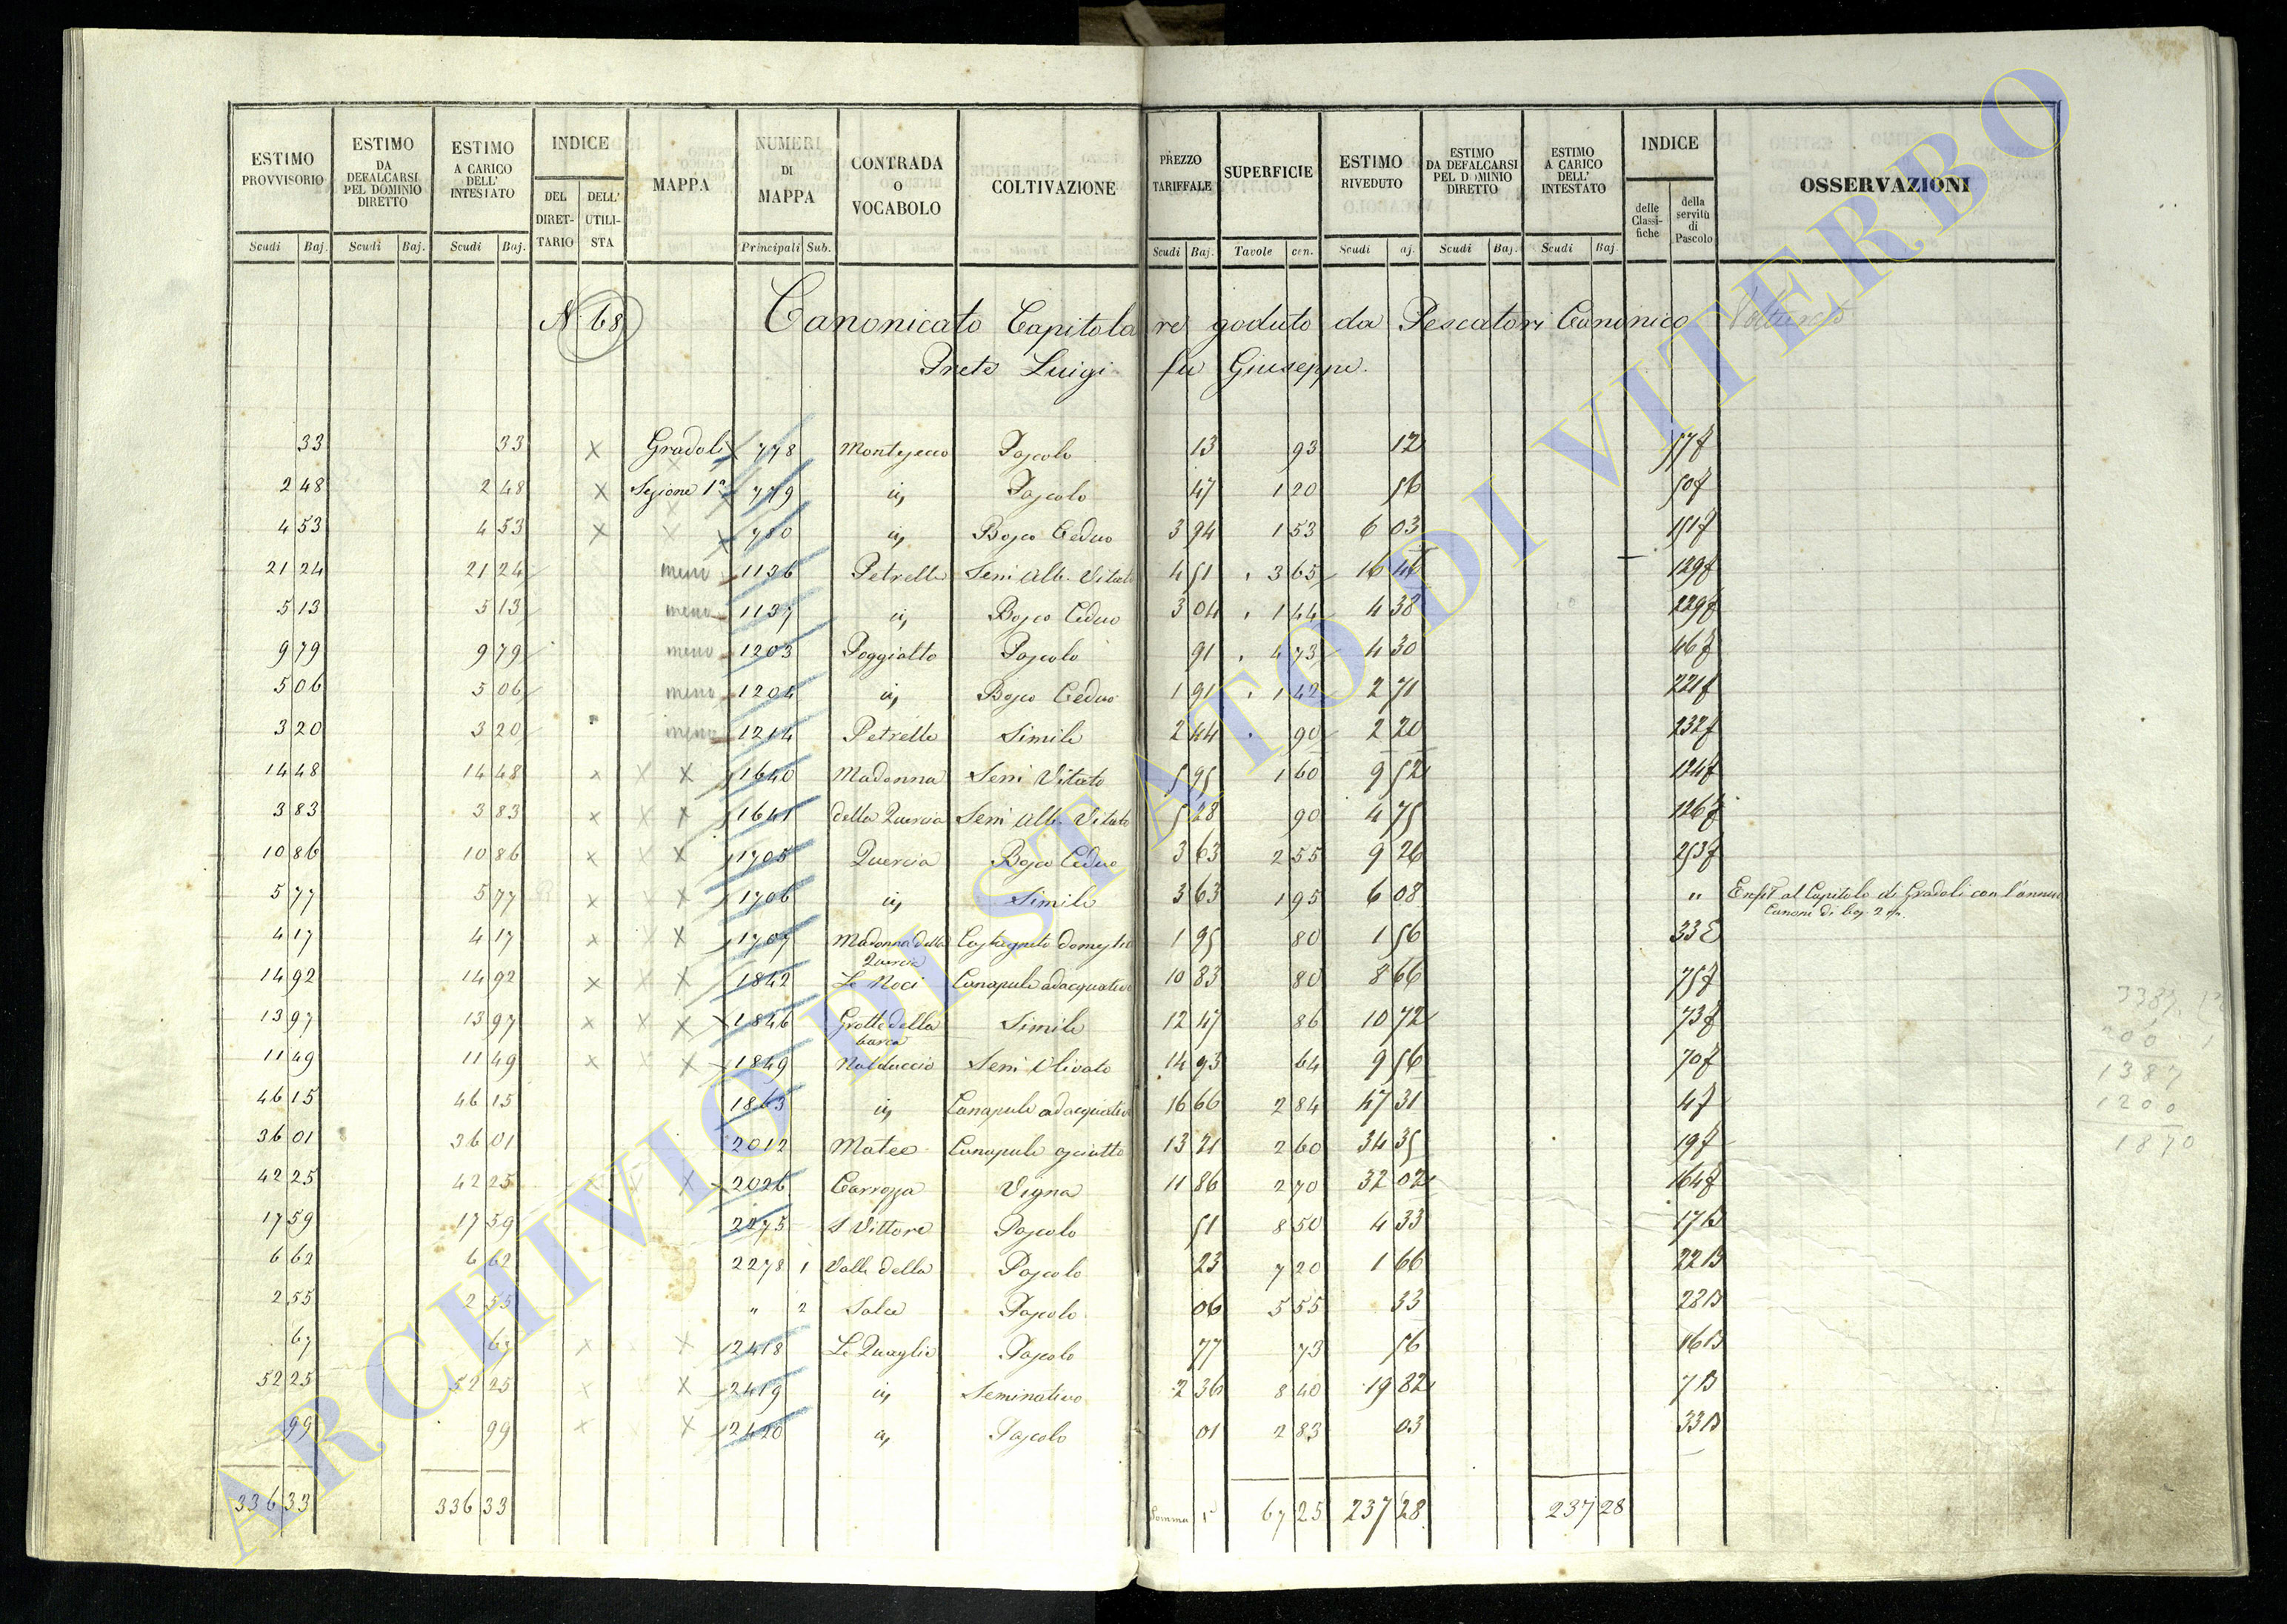 ESTIMO PROVVISORIO | ESTIMO DA DEFALCARSI PEL DOMINIO DIRETTO | ESTIMO A CARICO DELL' INTESTATO | INDICE DEL DIRETTARIO | DELL' UTILISTA | MAPPA | NUMERI DI MAPPA | CONTRADA O VOCABOLO | COLTIVAZIONE | PREZZO TARIFFALE | SUPERFICIE | ESTIMO RIVEDUTO | ESTIMO DA DEFALCARSI PEL DOMINIO DIRETTO | ESTIMO A CARICO DELL' INTESTATO | INDICE delle Classifiche | della servitù di Pascolo | OSSERVAZIONI
Scudi Baj. | Scudi Baj. | Scudi Baj. | Principali Sub. | Scudi Baj. | Tavole cen. | Scudi aj. | Scudi Baj. | Scudi Baj.
N. 68 Canonicato Capitolare goduto da Pescatori Canonico
Prete Luigi fu Giuseppe.
33 | 33 | X | Gradoli | 778 | Montejecco | Pascolo | 13 | 93 | 12 | 57f
2 48 | 2 48 | X | Sezione 1ª | 779 | id | Pascolo | 47 | 1 20 | 56 | 50f
4 53 | 4 53 | X | 780 | id | Bosco Ceduo | 3 94 | 1 53 | 6 03 | 151f
21 24 | 21 24 | meno | 1136 | Petrella | Semi Alb. Vitato | 4 51 | 3 65 | 16 46 | 129f
5 13 | 5 13 | meno | 1137 | id | Bosco Ceduo | 3 04 | 1 44 | 4 38 | 229f
9 79 | 9 79 | meno | 1203 | Poggiatto | Pascolo | 91 | 4 73 | 4 30 | 46f
5 06 | 5 06 | meno | 1204 | id | Bosco Ceduo | 1 91 | 1 42 | 2 71 | 221f
3 20 | 3 20 | meno | 1214 | Petrella | Simile | 2 44 | 90 | 2 20 | 232f
14 48 | 14 48 | x | X X | 1640 | Madonna | Semi Vitato | 5 95 | 1 60 | 9 52 | 124f
3 83 | 3 83 | x | X X | 1641 | della Quercia | Semi Alb. Vitato | 5 28 | 90 | 4 75 | 126f
10 86 | 10 86 | x | X X | 1705 | Quercia | Bosco Ceduo | 3 63 | 2 55 | 9 26 | 253f
5 77 | 5 77 | x | X | 1706 | id | Simile | 3 63 | 1 95 | 6 08 | " | Enft al Capitolo di Gradoli con l'annuo
Canone di baj. 2
4 17 | 4 17 | x | X X | 1707 | Madonna della Quercia | Castagneto domestico | 1 95 | 80 | 1 56 | 33E
14 92 | 14 92 | x | X X | 1842 | Le Noci | Canapule adacquativo | 10 83 | 80 | 8 66 | 75f
13 97 | 13 97 | x | X X | 1846 | Grotte della barca | Simile | 12 47 | 86 | 10 72 | 73f
11 49 | 11 49 | x | X X | 1849 | Nalduccio | Semi Olivato | 14 93 | 64 | 9 56 | 70f
46 15 | 46 15 | 1863 | id | Canapule adacquativo | 16 66 | 2 84 | 47 31 | 4f
36 01 | 36 01 | 2012 | Matee | Canapule asciutto | 13 21 | 2 60 | 34 35 | 19f
42 25 | 42 25 | X | 2026 | Carrozza | Vigna | 11 86 | 2 70 | 32 02 | 164f
17 59 | 17 59 | 2275 | S Vittore | Pascolo | 51 | 8 50 | 4 33 | 17B
6 62 | 6 62 | 2278 1 | Valle della | Pascolo | 23 | 7 20 | 1 66 | 22B
2 55 | 2 55 | " 2 | Salce | Pascolo | 06 | 5 55 | 33 | 28B
67 | 67 | x | X | 2418 | Le Quaglie | Pascolo | 77 | 73 | 56 | 16B
52 25 | 52 25 | x | X | 2419 | id | Seminativo | 2 36 | 8 40 | 19 82 | 7B
99 | 99 | x | X | 2420 | id | Pascolo | 01 | 2 83 | 03 | 33B
336 33 | 336 33 | Somma | 67 25 | 237 28 | 237 28
1387
1200
1870
ARCHIVIO DI STATO DI VITERBO